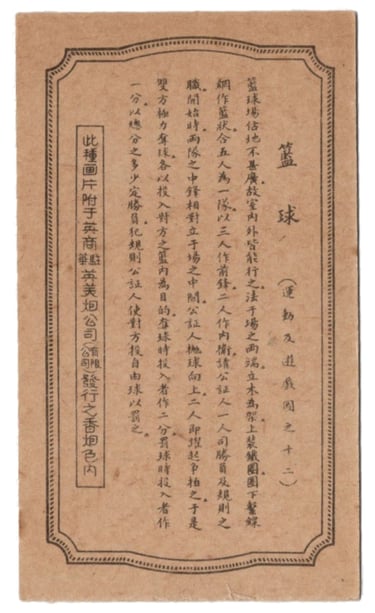 籃球 (運動及遊戲圖之十二)
籃球場佔地不甚廣。故室內外皆能行之。法于場之兩端。立木為架。上裝鐵圈。圈下繫線
網作籃狀。合五人為一隊。以三人作前鋒。二人作內衛。請公証人一人。司勝負及規則之
職。開始時。兩隊之中鋒。相對立于場之中間。公証人拋球向上。二人即躍起爭拍之。于是
雙方極力奪球。各以投入對方之籃內為目的。奪球時投入者作二分。罰球時投入者作
一分。以總分之多少定勝負。犯規則公証人使對方投自由球以罰之。
此種画片附于英商駐華英美烟公司(有限公司)發行之香烟包內